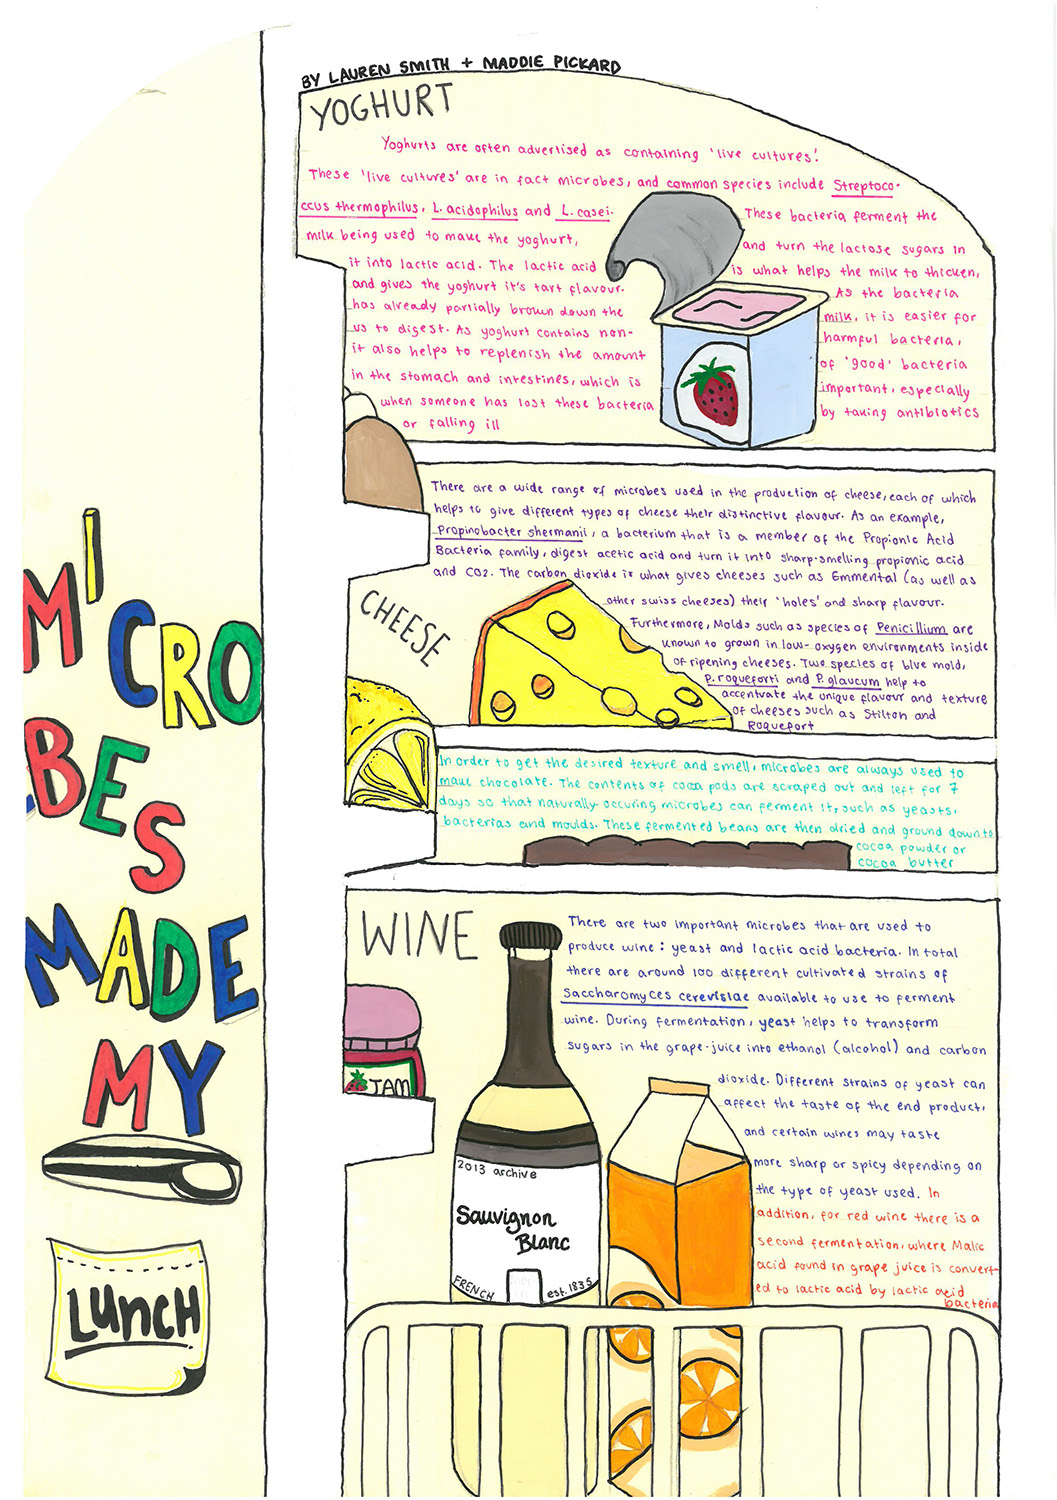 BY LAUREN SMITH + MADDIE PICKARD
YOGHURT
Yoghurts are often advertised as containing 'live cultures'.
These 'live cultures' are in fact microbes, and common species include Streptoco-
ccus thermophilus, L. acidophilus and L. casei. These bacteria ferment the
milk being used to make the yoghurt, and turn the lactose sugars in
it into lactic acid. The lactic acid is what helps the milk to thicken,
and gives the yoghurt it's tart flavour. As the bacteria
has already partially brown down the milk, it is easier for
us to digest. As yoghurt contains non- harmful bacteria,
it also helps to replenish the amount of 'good' bacteria
in the stomach and intestines, which is important, especially
when someone has lost these bacteria by taking antibiotics
or falling ill
There are a wide range of microbes used in the production of cheese, each of which
helps to give different types of cheese their distinctive flavour. As an example,
Propinobacter shermanii, a bacterium that is a member of the Propionic Acid
Bacteria family, digest acetic acid and turn it into sharp-smelling propionic acid
and CO2. The carbon dioxide is what gives cheeses such as Emmental (as well as
other swiss cheeses) their 'holes' and sharp flavour.
CHEESE
Furthermore, Molds such as species of Penicillium are
known to grown in low-oxygen environments inside
of ripening cheeses. Two species of blue mold,
P. roqueforti and P. glaucum help to
accentuate the unique flavour and texture
of cheeses such as Stilton and
Roquefort
In order to get the desired texture and smell, microbes are always used to
make chocolate. The contents of coca pods are scraped out and left for 7
days so that naturally-occuring microbes can ferment it, such as yeasts,
bacterias and moulds. These fermented beans are then dried and ground down to
cocoa powder or
cocoa butter
WINE
There are two important microbes that are used to
produce wine: yeast and lactic acid bacteria. In total
there are around 100 different cultivated strains of
Saccharomyces cerevisiae available to use to ferment
wine. During fermentation, yeast helps to transform
sugars in the grape-juice into ethanol (alcohol) and carbon
dioxide. Different strains of yeast can
affect the taste of the end product,
and certain wines may taste
more sharp or spicy depending on
the type of yeast used. In
addition, for red wine there is a
second fermentation, where Malic
acid found in grape juice is convert-
ed to lactic acid by lactic acid
bacteria
JAM
2013 archive
Sauvignon
Blanc
FRENCH est. 1835
MICRO
BES
MADE
MY
LUNCH